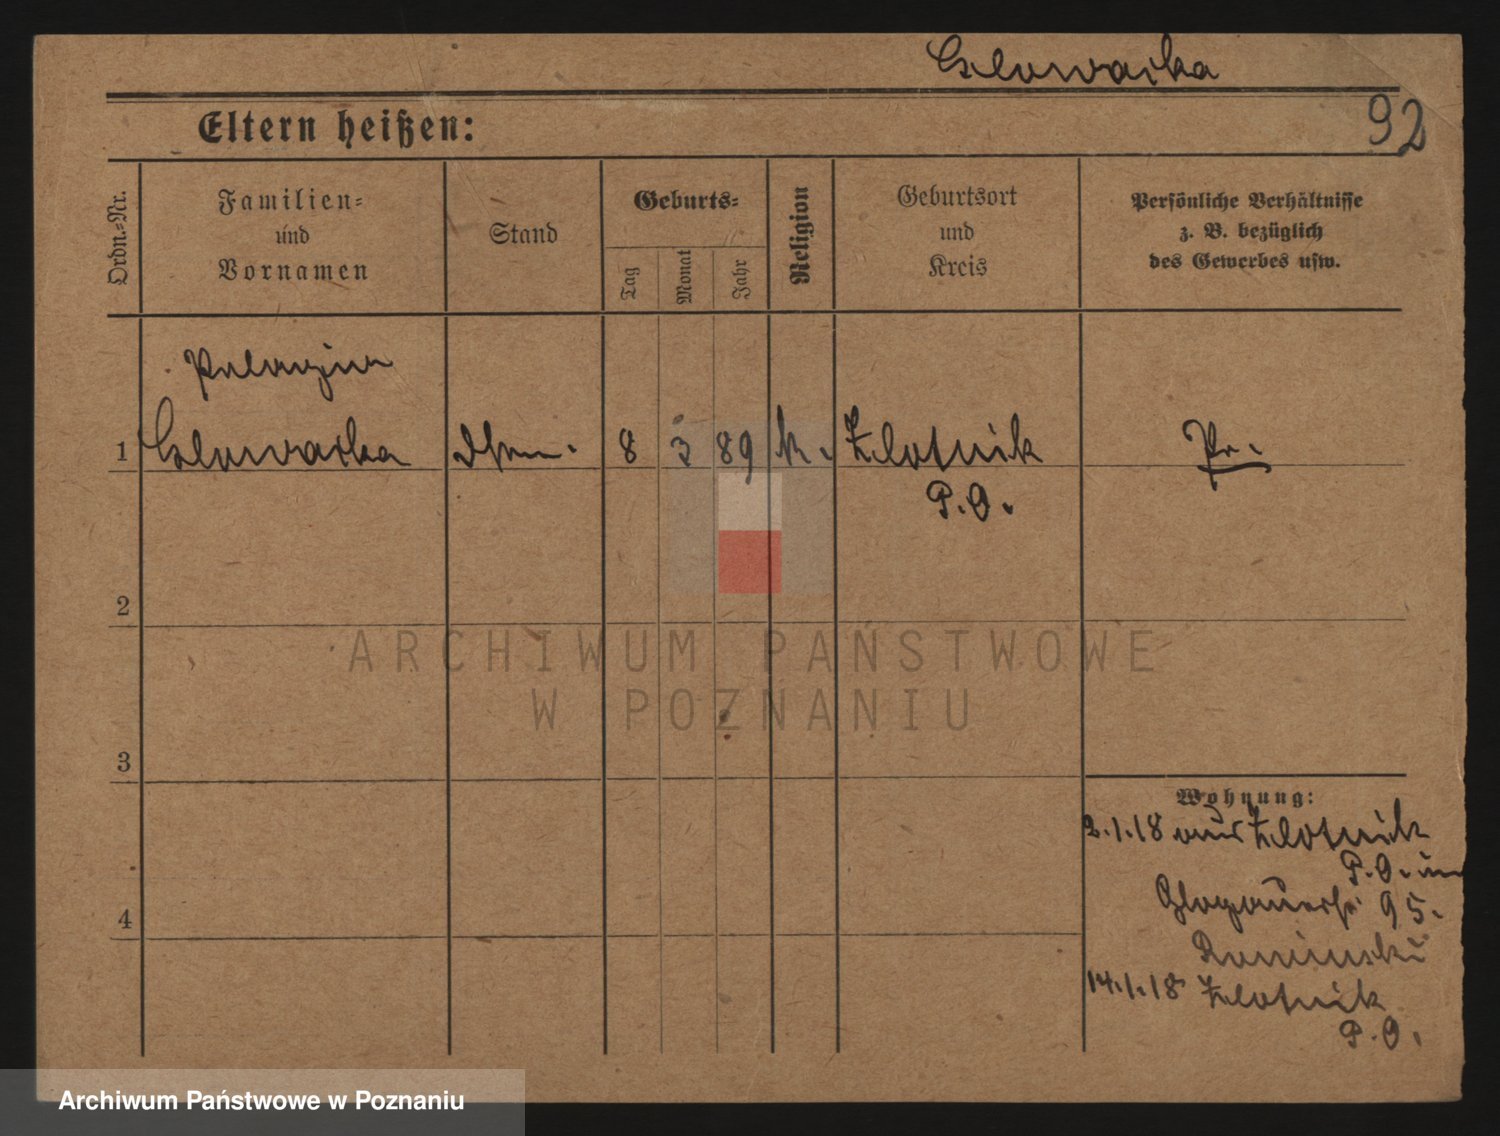 Glowacka
92
Eltern heißen:
Ordn.-Nr.
Familien-
und
Vornamen
Stand
Geburts-
Tag
Monat
Jahr
Religion
Geburtsort
und
Kreis
Persönliche Verhältnisse
z. B. bezüglich
des Gewerbes usw.
Pelagia
1 Glowacka 8 3 89 k. Zlotnik Pr.
P. O.
2
ARCHIWUM PAŃSTWOWE
W POZNANIU
3
Wohnung:
2.1.18 aus Zlotnik
P. O. in
Glogauerstr 95.
4
14.1.18 Zlotnik
P. O.
Archiwum Państwowe w Poznaniu